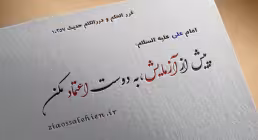 غرر الحکم و دررالکلم حدیث ۱،۲۵۷
امام علی علیه السلام:
پیش از آزمایش، به دوست اعتماد مکن
ziaossalehien.ir